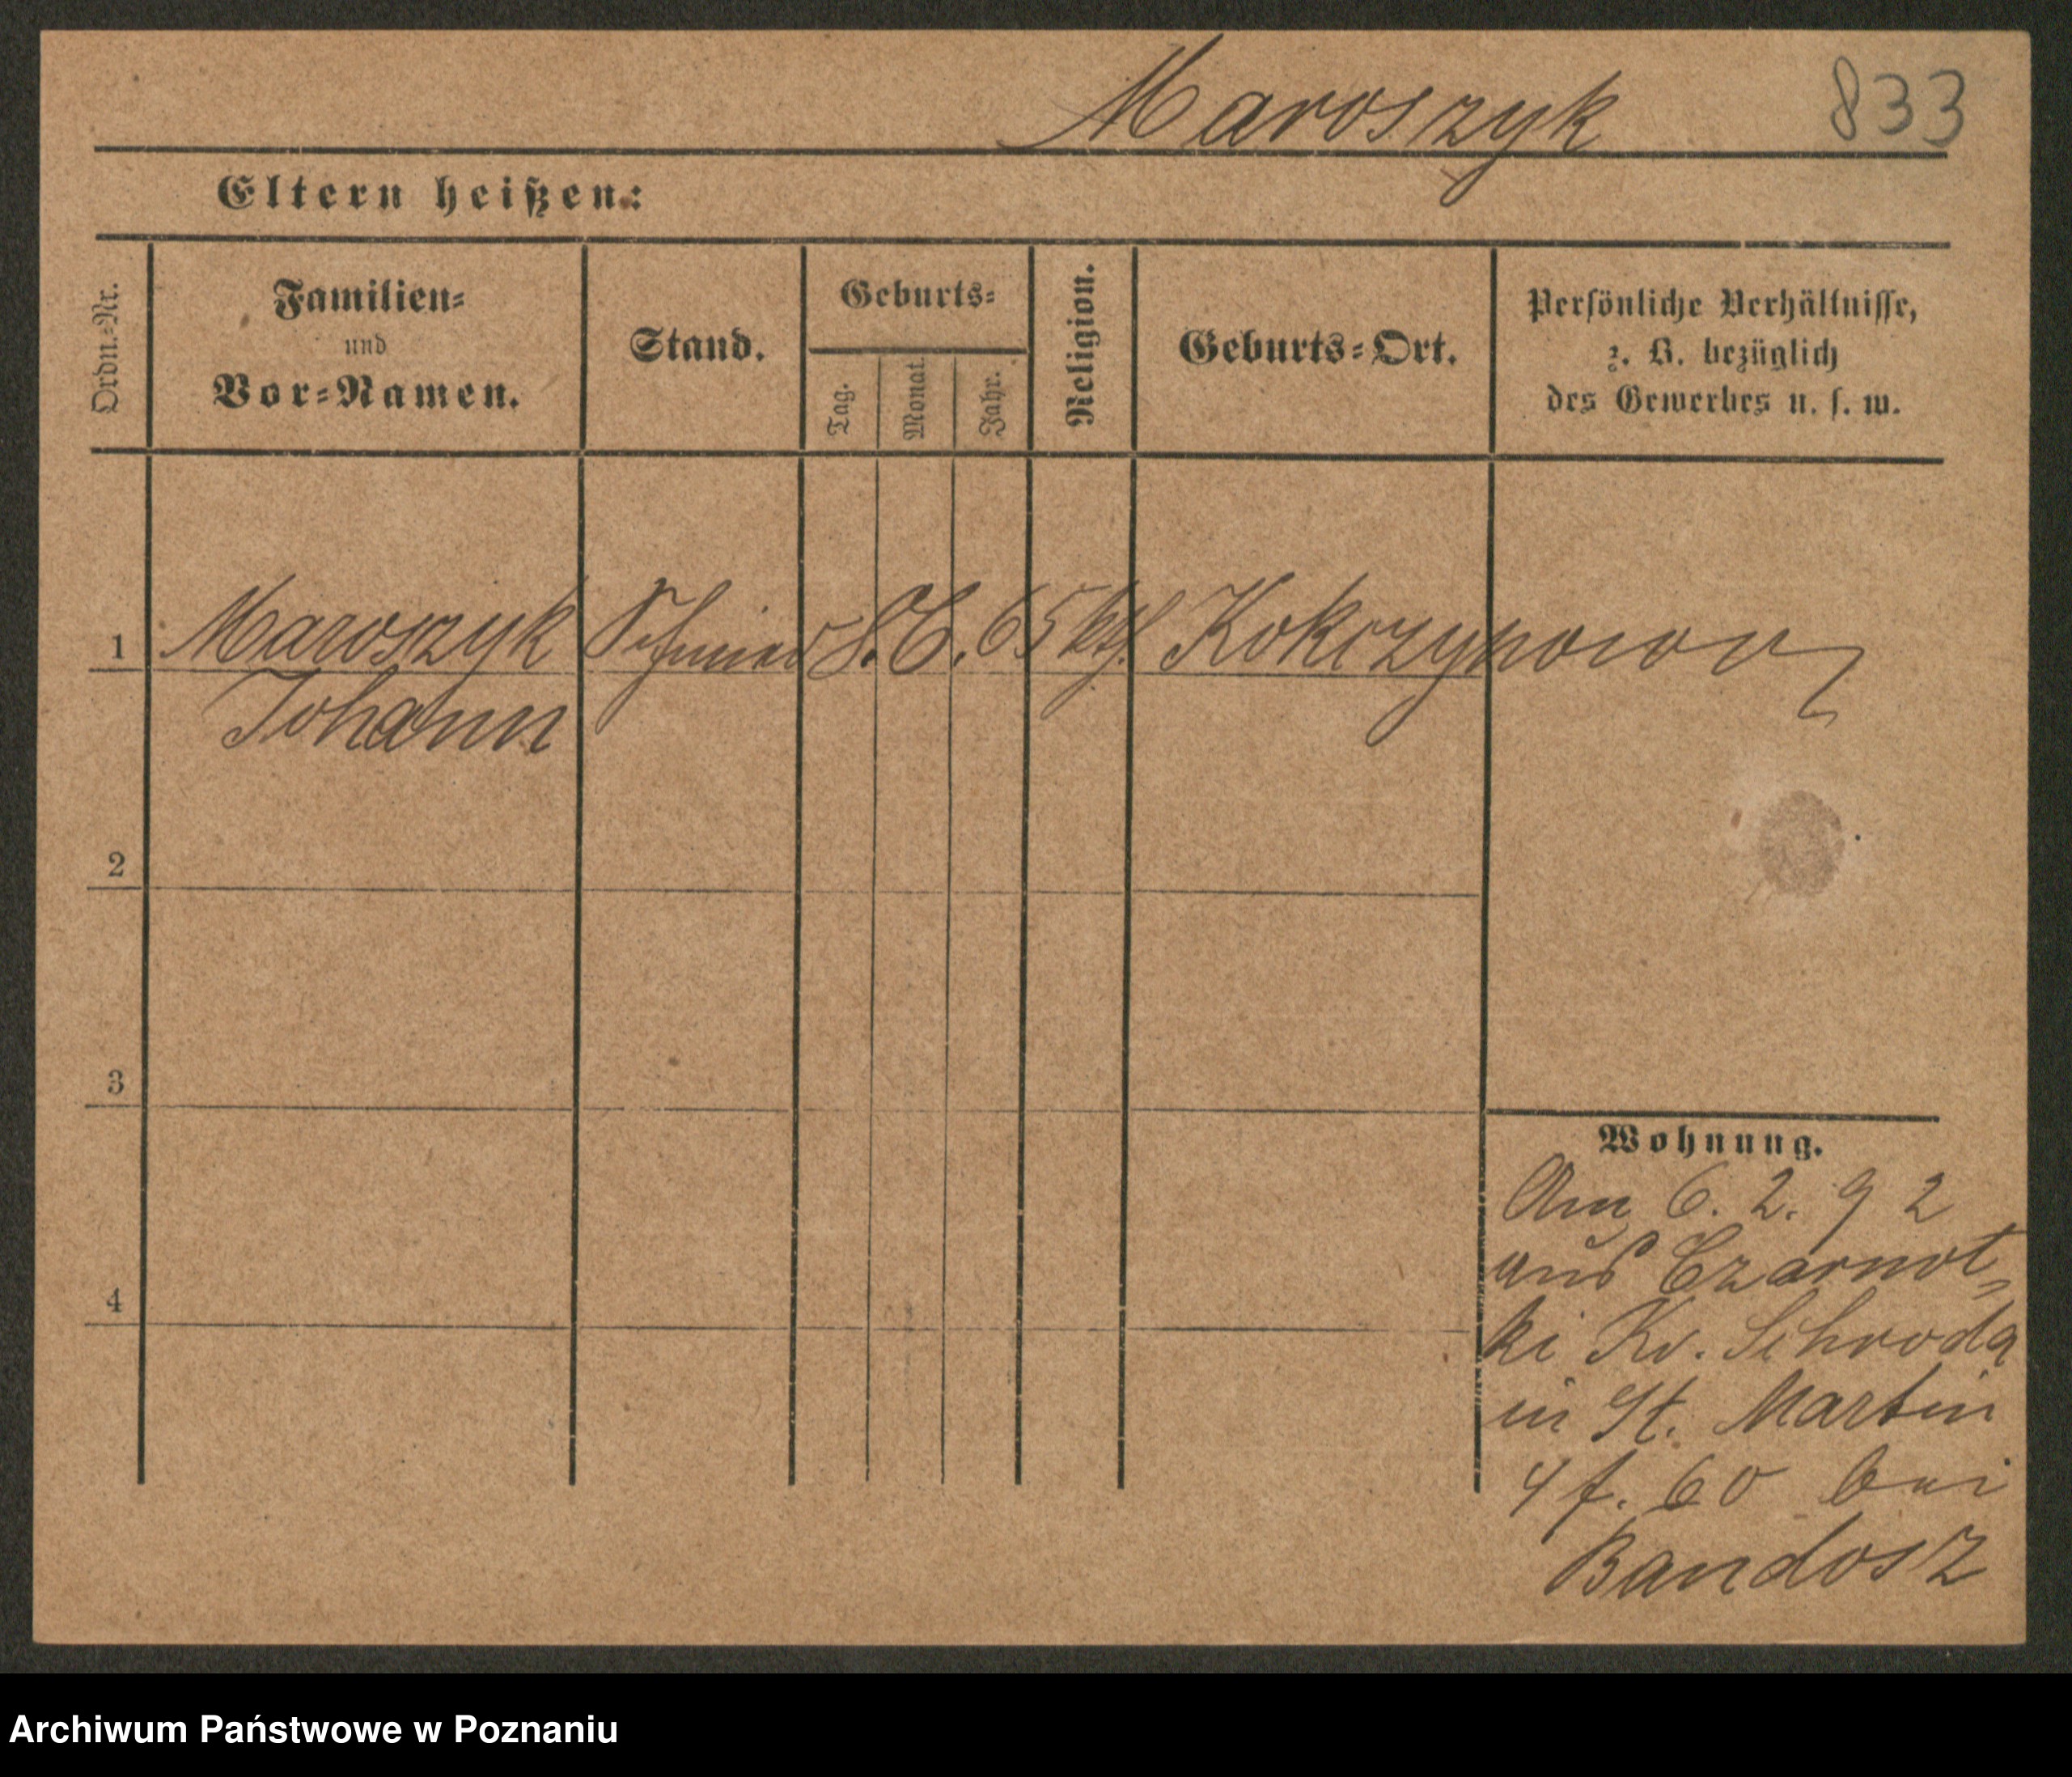 Maroszyk 833
Eltern heißen:
Ordn.-Nr.
Familien-
und
Vor-Namen.
Stand.
Geburts-
Tag.
Monat.
Jahr.
Religion.
Geburts-Ort.
Persönliche Verhältnisse,
z. B. bezüglich
des Gewerbes u. s. w.
1 Maroszyk Schmied 8. 6. 65 kth. Kokczynowo
Johann
2
3
4
Wohnung.
Am 6. 2. 92
aus Czarnot-
ki Kr. Schroda
in St. Martin
60 bei
Bandosz
Archiwum Państwowe w Poznaniu